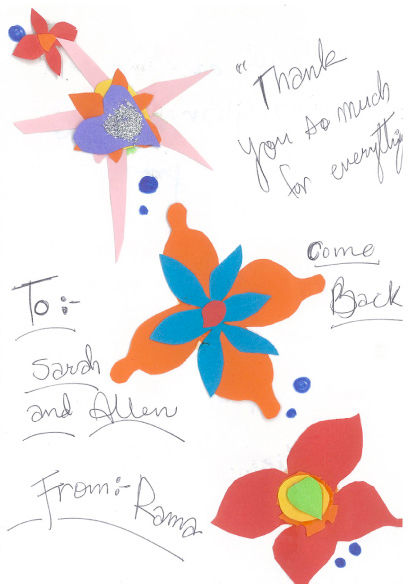 "Thank
you so much
for everything
Come
Back
To:-
Sarah
and Allen
From:- Rama